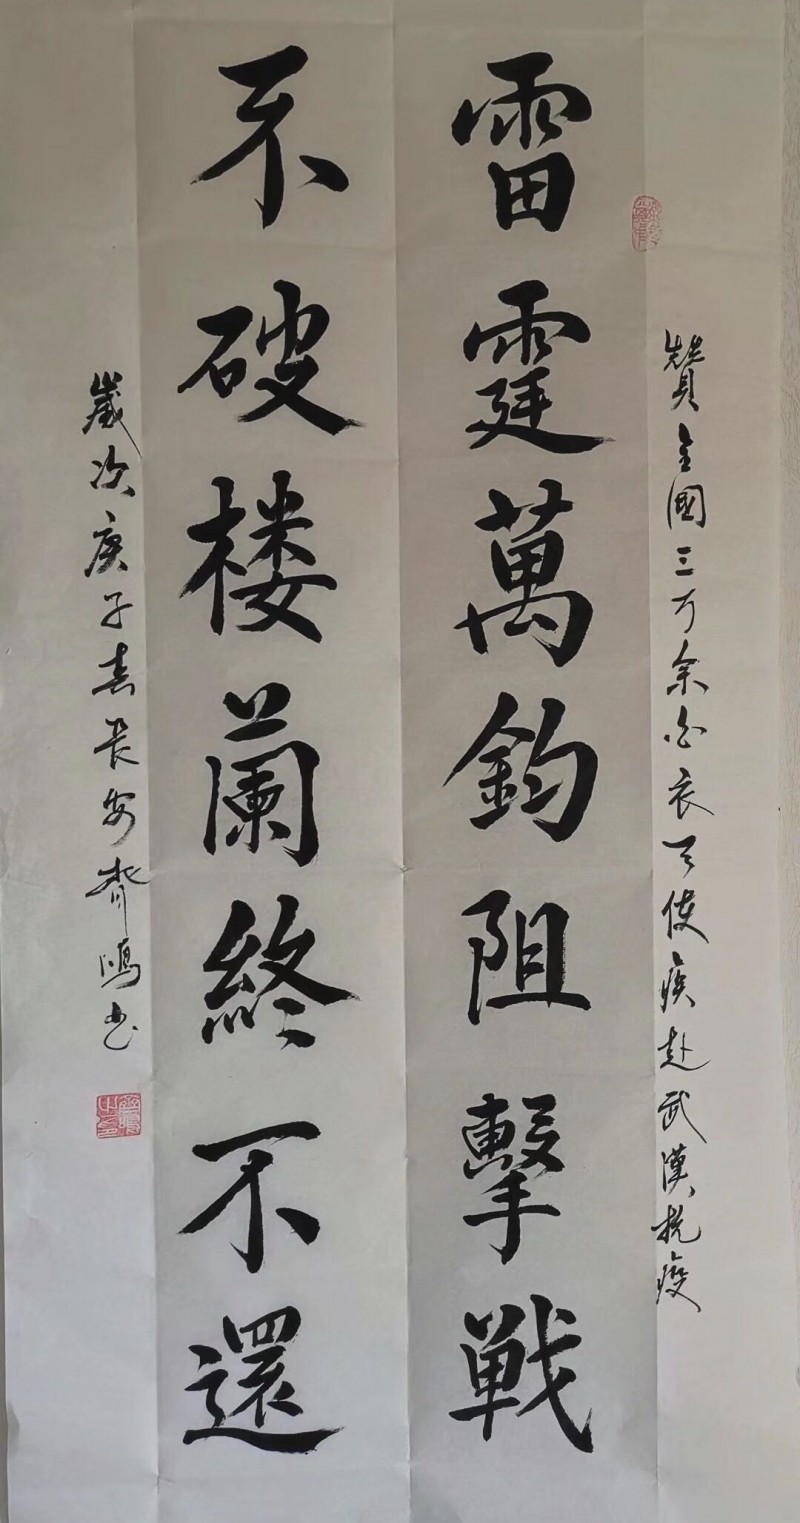 贊全國三万余白衣天使疾赴武漢抗疫
雷霆萬鈞阻擊戦
不破楼蘭終不還
歲次庚子春長安齊鴻书